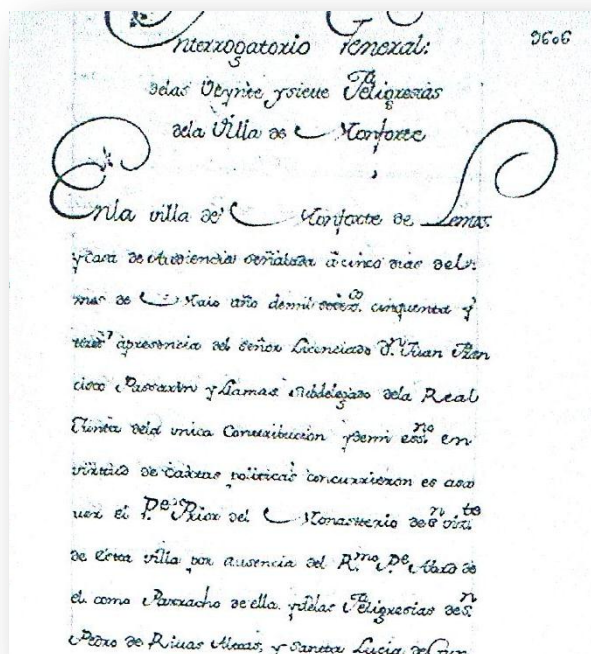 Ynterrogatorio General:
9606
delas Veynte ysiete Feligresias
dela Villa de Monforte
Enla villa de Monforte de Lemos
y Casa de Audiencia señalada á cinco dias del
mes de Maio año demil setezos. cinquenta y
tres apresencia del señor Licenciado Dn. Juan Fran
cisco Passarin y Llamas Subdelegado dela Real
Junta dela unica Contribucion ydemi essno. en
virttud de Cartas politicas concurrieron es asa
uer el Pe. Prior del Monasterio de Sn. Vizte
de esta villa por ausencia del Rmo. Pe. Abad de
el como Parracho de ella, ydelas Feligresias de Sn.
Pedro de Riuas Altas, y Santta Lucia de